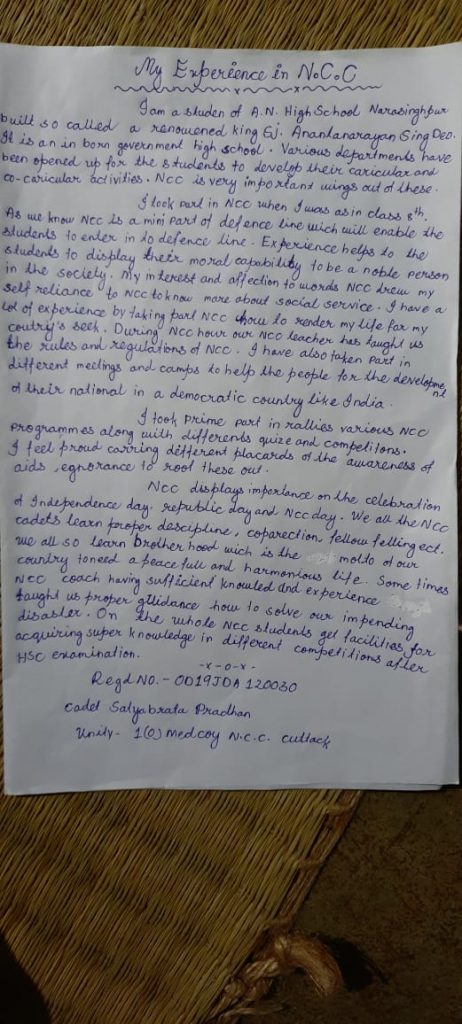 My Experience in N.C.C
I am a studen of A.N. High School Narasinghpur
built so called a renowened king Gj. Anantanarayan Sing Deo.
It is an in born government high school. Various departments have
been opened up for the students to develop their caricular and
co-caricular activities. NCC is very important wings out of these.
I took part in NCC when I was as in class 8th.
As we know NCC is a mini part of defence line wich will enable the
students to enter in to defence line. Experience helps to the
students to display their moral capability to be a noble person
in the society. My interest and affection to words NCC drew my
self reliance to NCC to know more about social service. I have a
lot of experience by taking part NCC how to render my life for my
coutry's seek. During NCC hour our NCC teacher has taught us
the rules and regulations of NCC. I have also taken part in
different meetings and camps to help the people for the development
of their national in a democratic country like India.
I took prime part in rallies various NCC
programmes along with differents quize and competitons.
I feel proud carring different placards of the awareness of
aids, egnorance to root these out.
NCC displays importance on the celebration
of Independence day. republic day and NCC day. We all the NCC
cadets learn proper descipline, coparection, fellow felling ect.
we all so learn brother hood wich is the motto of our
country to need a peace full and harmonious life. Some times
NCC coach having sufficient knowled and experience
taught us proper guidance how to solve our impending
disaster. On the whole NCC students get facilities for
acquiring super knowledge in different competitions after
HSC examination.
-x-o-x-
Regd NO. - OD19JDA 120030
cadet Satyabrata Pradhan
Unity - 1(O) med coy N.C.C. cuttack